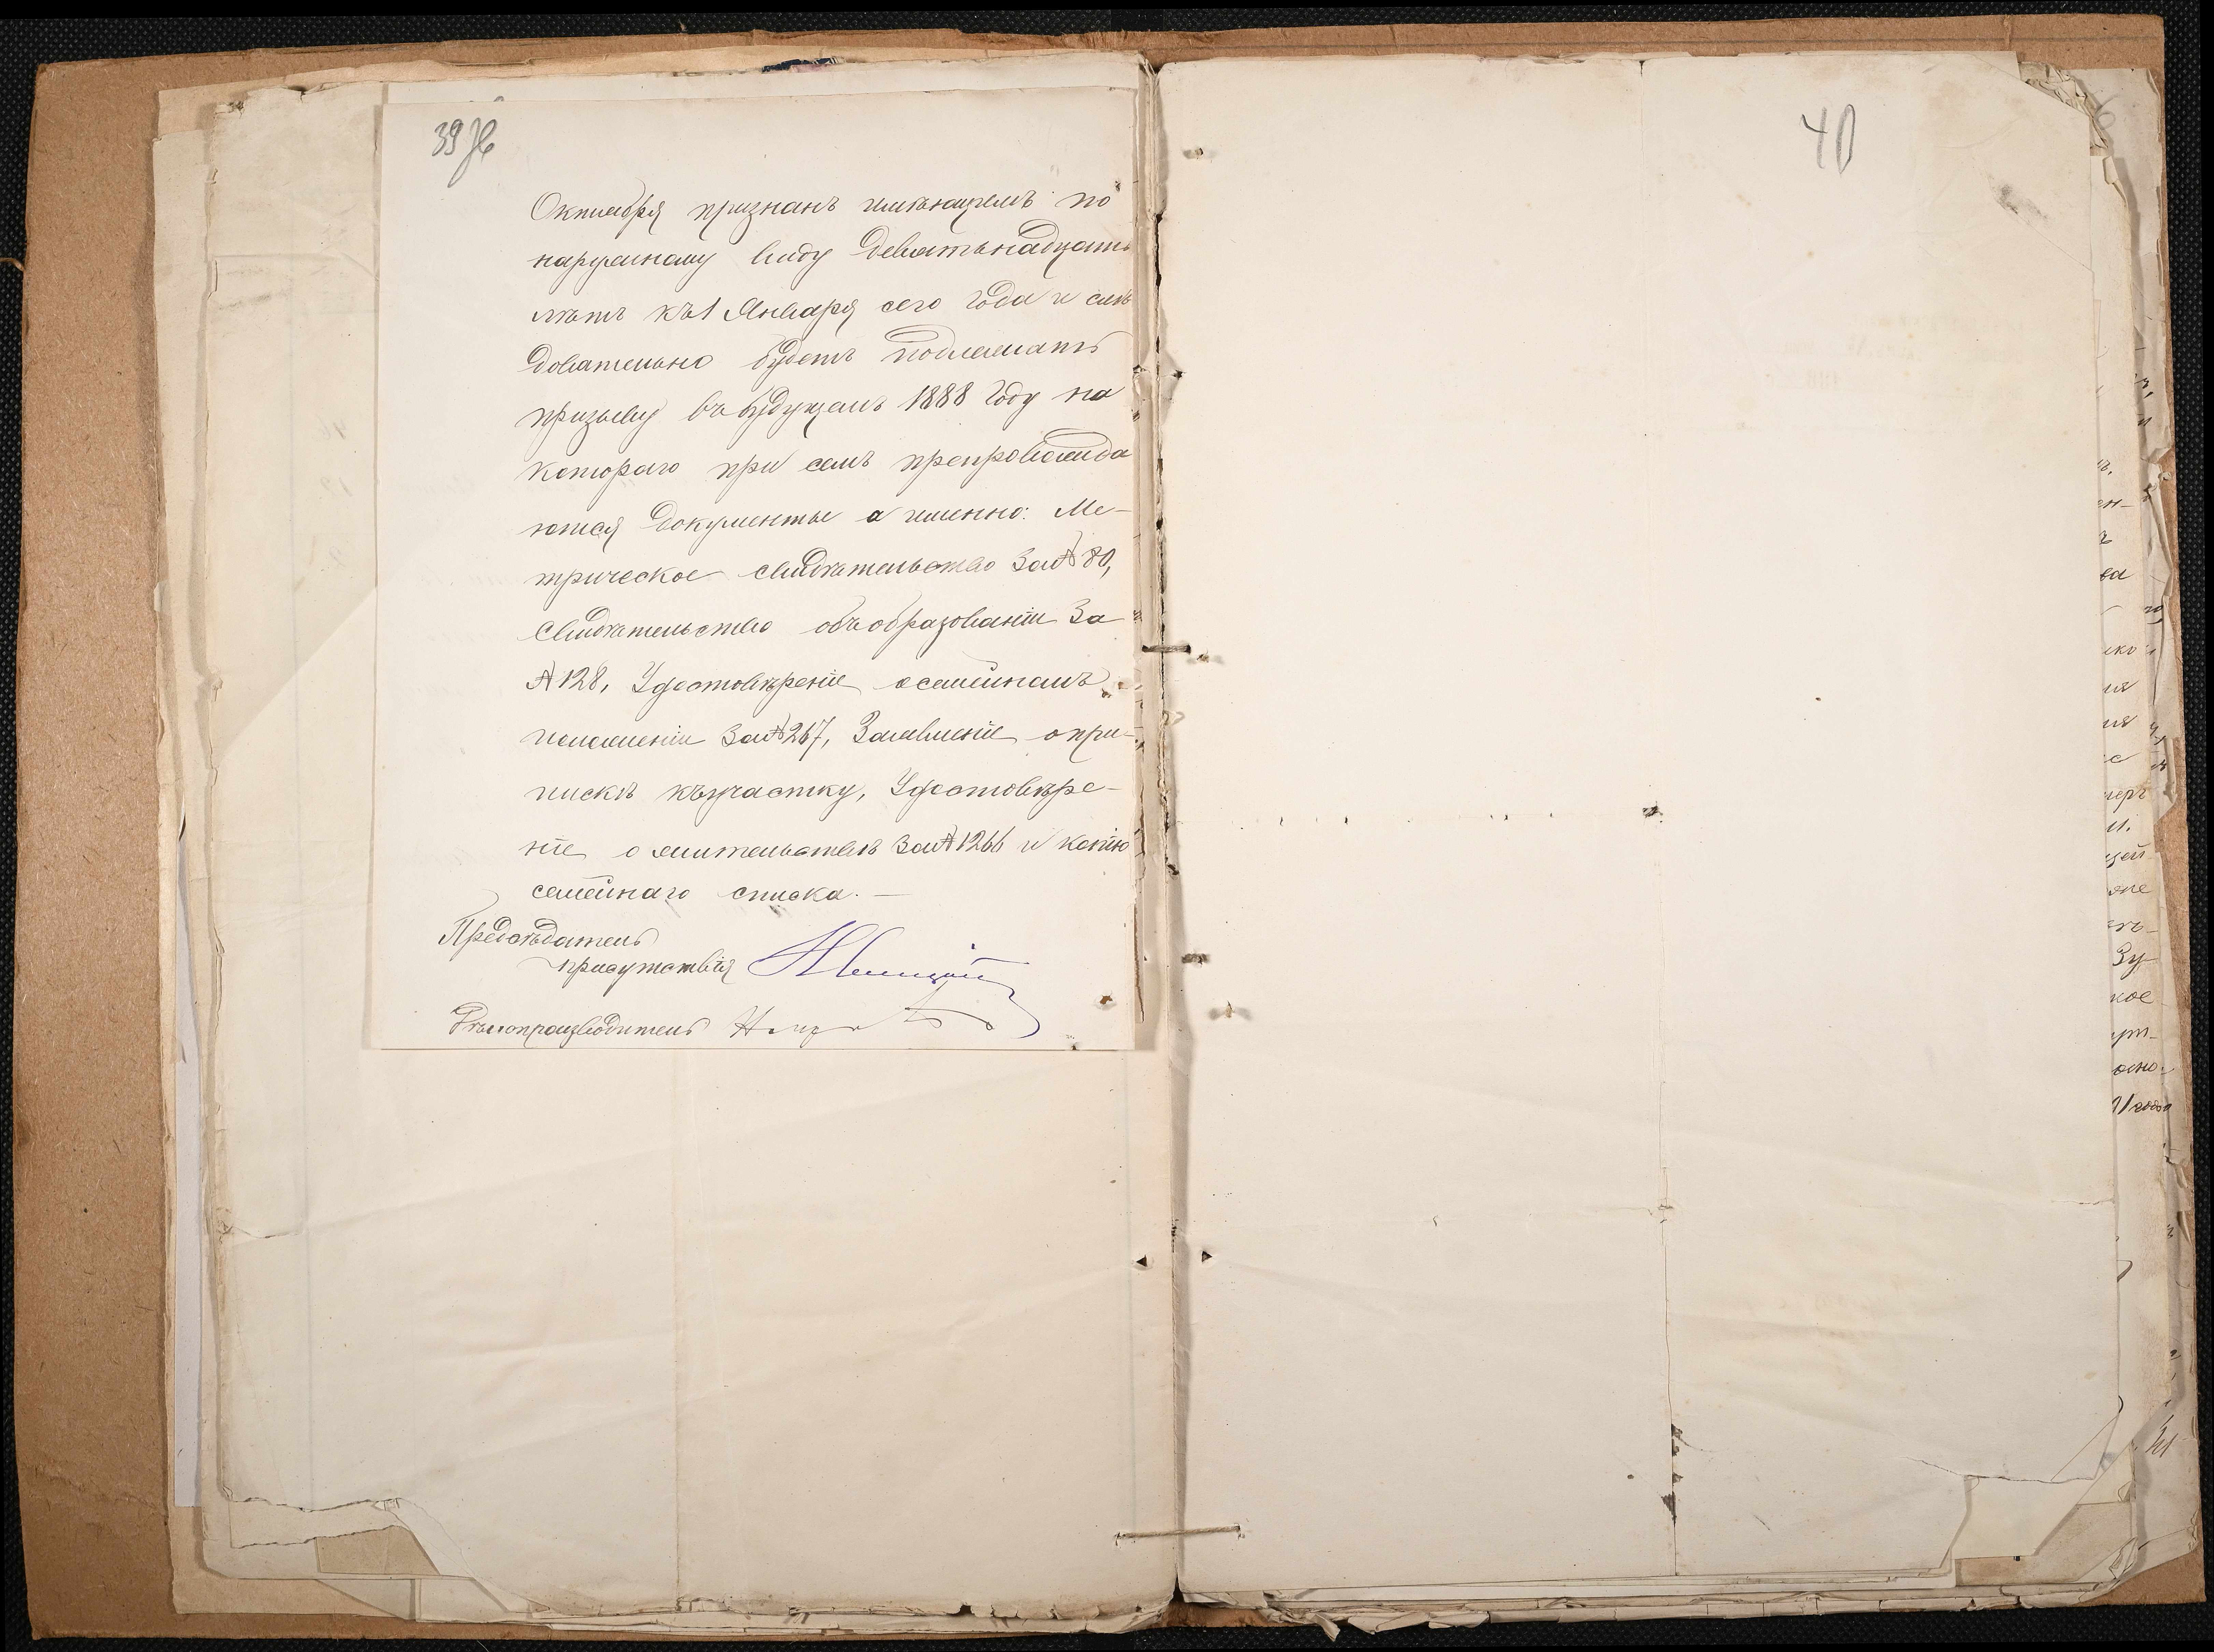 39 об
Октября признанъ имѣющемъ по
наружному виду девятьнадцать
лѣтъ къ 1 Января сего года и слѣ
довательно будетъ подлежать
призыву въ будущемъ 1888 году на
котораго при семъ препровожда
ются документы а именно: Ме-
трическое свидѣтельство за № 80,
Свидѣтельство объ образованіи за
№ 128, Удостовѣреніе о семейномъ
положеніи за № 267, Заявленіе о при-
пискѣ къ участку, Удостовѣре-
ніе о жительствѣ за № 1266 и копію
семейнаго списка. —
Предсѣдатель
присутствія
Дѣлопроизводитель
40